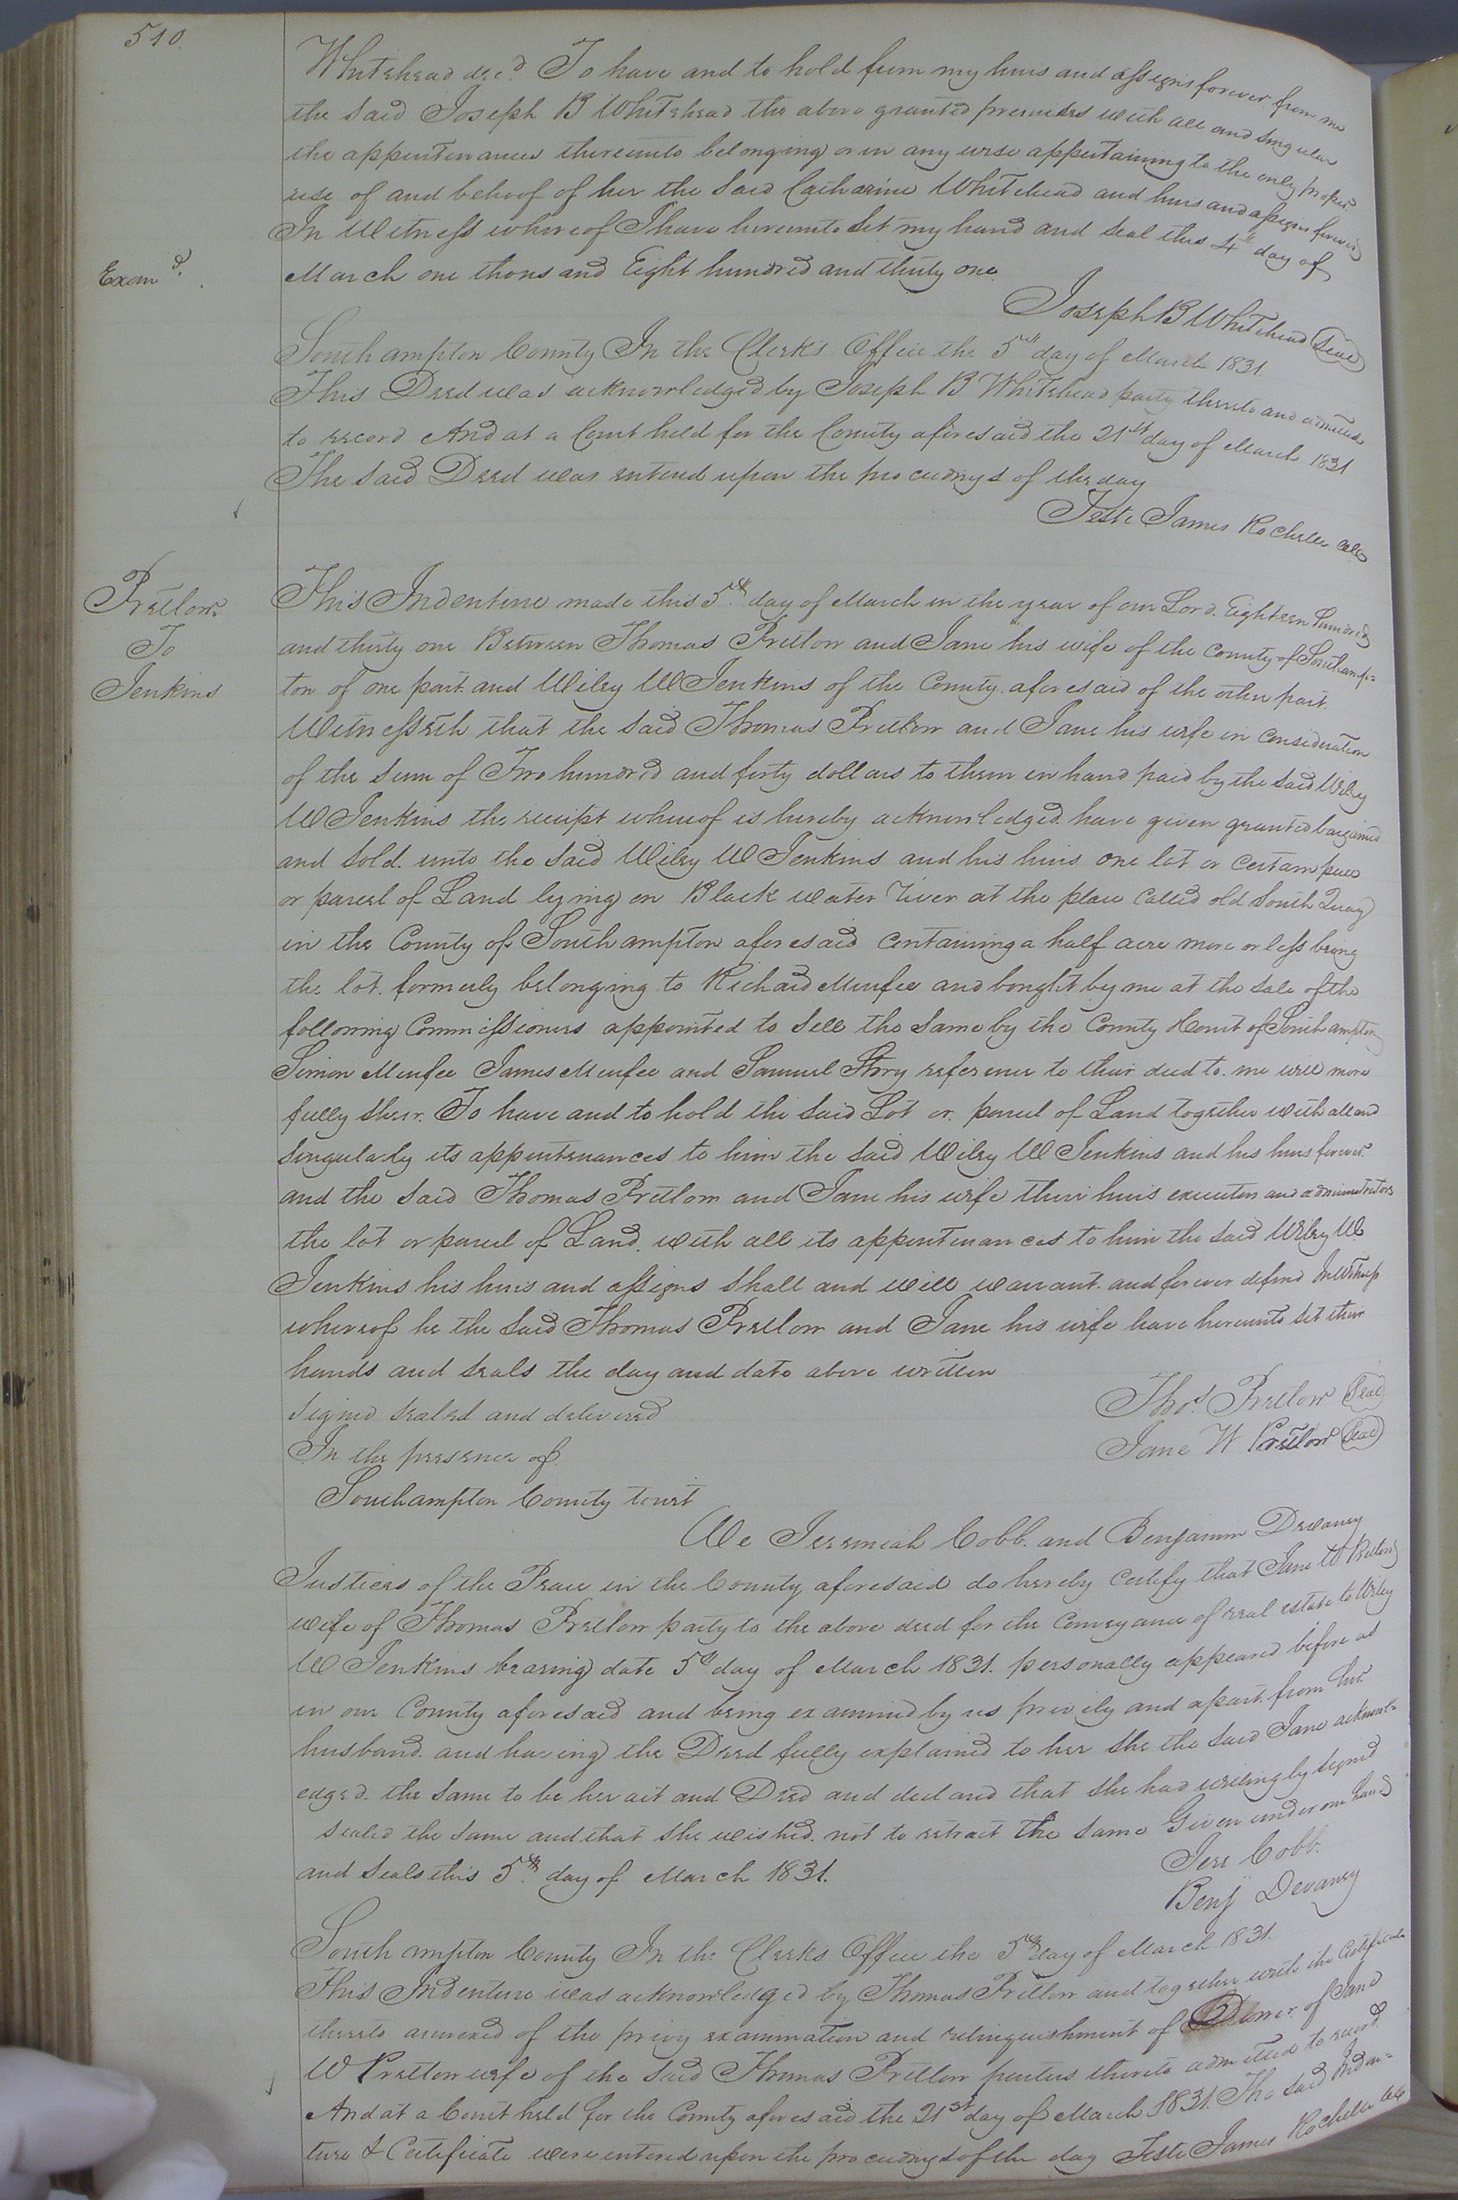 510.
Whitehead decd. To have and to hold from my heirs and assigns forever from me
the said Joseph B Whitehead the above granted premises with all and singular
the appurtenances thereunto belonging or in any wise appertaining to the only proper
use of and behoof of her the said Catharine Whitehead and heirs and assigns forever
In Witness whereof I have hereunto set my hand and seal this 4th day of
Examd.
March one thousand Eight hundred and thirty one
Joseph B Whitehead Seal
Southampton County In the Clerk's Office the 5th day of March 1831
This Deed was acknowledged by Joseph B Whitehead party thereto and admitted
to record And at a Court held for the County aforesaid the 21st day of March 1831
The said Deed was entered upon the proceedings of the day
Teste James Rochelle
Pretlow
To
Jenkins
This Indenture made this 5th day of March in the year of our Lord Eighteen hundred
and thirty one Between Thomas Pretlow and Jane his wife of the County of Southamp=
ton of one part and Wiley W Jenkins of the County aforesaid of the other part.
Witnesseth that the said Thomas Pretlow and Jane his wife in consideration
of the sum of Two hundred and forty dollars to them in hand paid by the said Wiley
W Jenkins the receipt whereof is hereby acknowledged have given granted bargained
and sold unto the said Wiley W Jenkins and his heirs one lot or certain piece
or parcel of Land lying on Black water River at the place called old South Quay
in the County of Southampton aforesaid containing a half acre more or less being
the lot formerly belonging to Richard Minfee and bought by me at the sale of the
following Commissioners appointed to sell the same by the County Court of Southampton
Simon Minfee James Minfee and Samuel Story reference to their deed to me will more
fully shew. To have and to hold the said Lot or parcel of Land together with all and
singularly its appurtenances to him the said Wiley W Jenkins and his heirs forever
and the said Thomas Pretlow and Jane his wife their heirs executors and administrators
the lot or parcel of Land with all its appurtenances to him the said Wiley W
Jenkins his heirs and assigns shall and will warrant and forever defend In Witness
whereof he the said Thomas Pretlow and Jane his wife have hereunto set their
hands and seals the day and date above written
Signed sealed and delivered
Thos. Pretlow Seal
In the presence of
Jane W Pretlow Seal
Southampton County towit
We Jeremiah Cobb and Benjamin Devaney
Justices of the Peace in the County aforesaid do hereby certify that Jane W Pretlow
wife of Thomas Pretlow party to the above deed for the Conveyance of real estate to Wiley
W Jenkins bearing date 5th day of March 1831. personally appeared before us
in our County aforesaid and being examined by us privily and apart from her
husband and having the Deed fully explained to her she the said Jane acknowl=
edged the same to be her act and Deed and declared that she had willingly signed
sealed the same and that she wished not to retract the same Given under our hand
and seals this 5th day of March 1831.
Jere Cobb.
Benj Devaney
Southampton County In the Clerks Office the 5th day of March 1831.
This Indenture was acknowledged by Thomas Pretlow and together with the Certificate
thereto annexed of the privy examination and relinquishment of Dower of Jane
W Pretlow wife of the said Thomas Pretlow parties thereto admitted to record
And at a Court held for the County aforesaid the 21st day of March 1831. The said Inden=
ture & Certificate were entered upon the proceedings of the day Teste James Rochelle